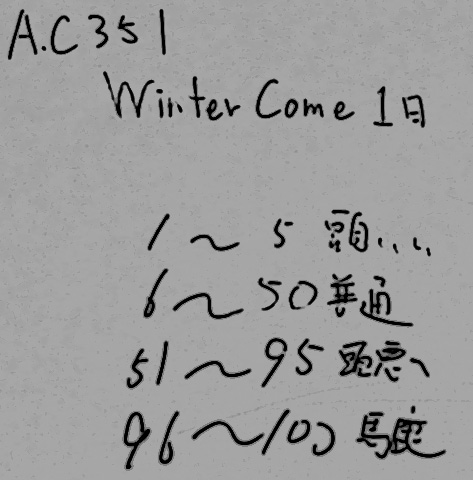 A.C 351
Winter Come 1日
1～5 頭....
6～50 普通
51～95 頭悪い
96～100 馬鹿